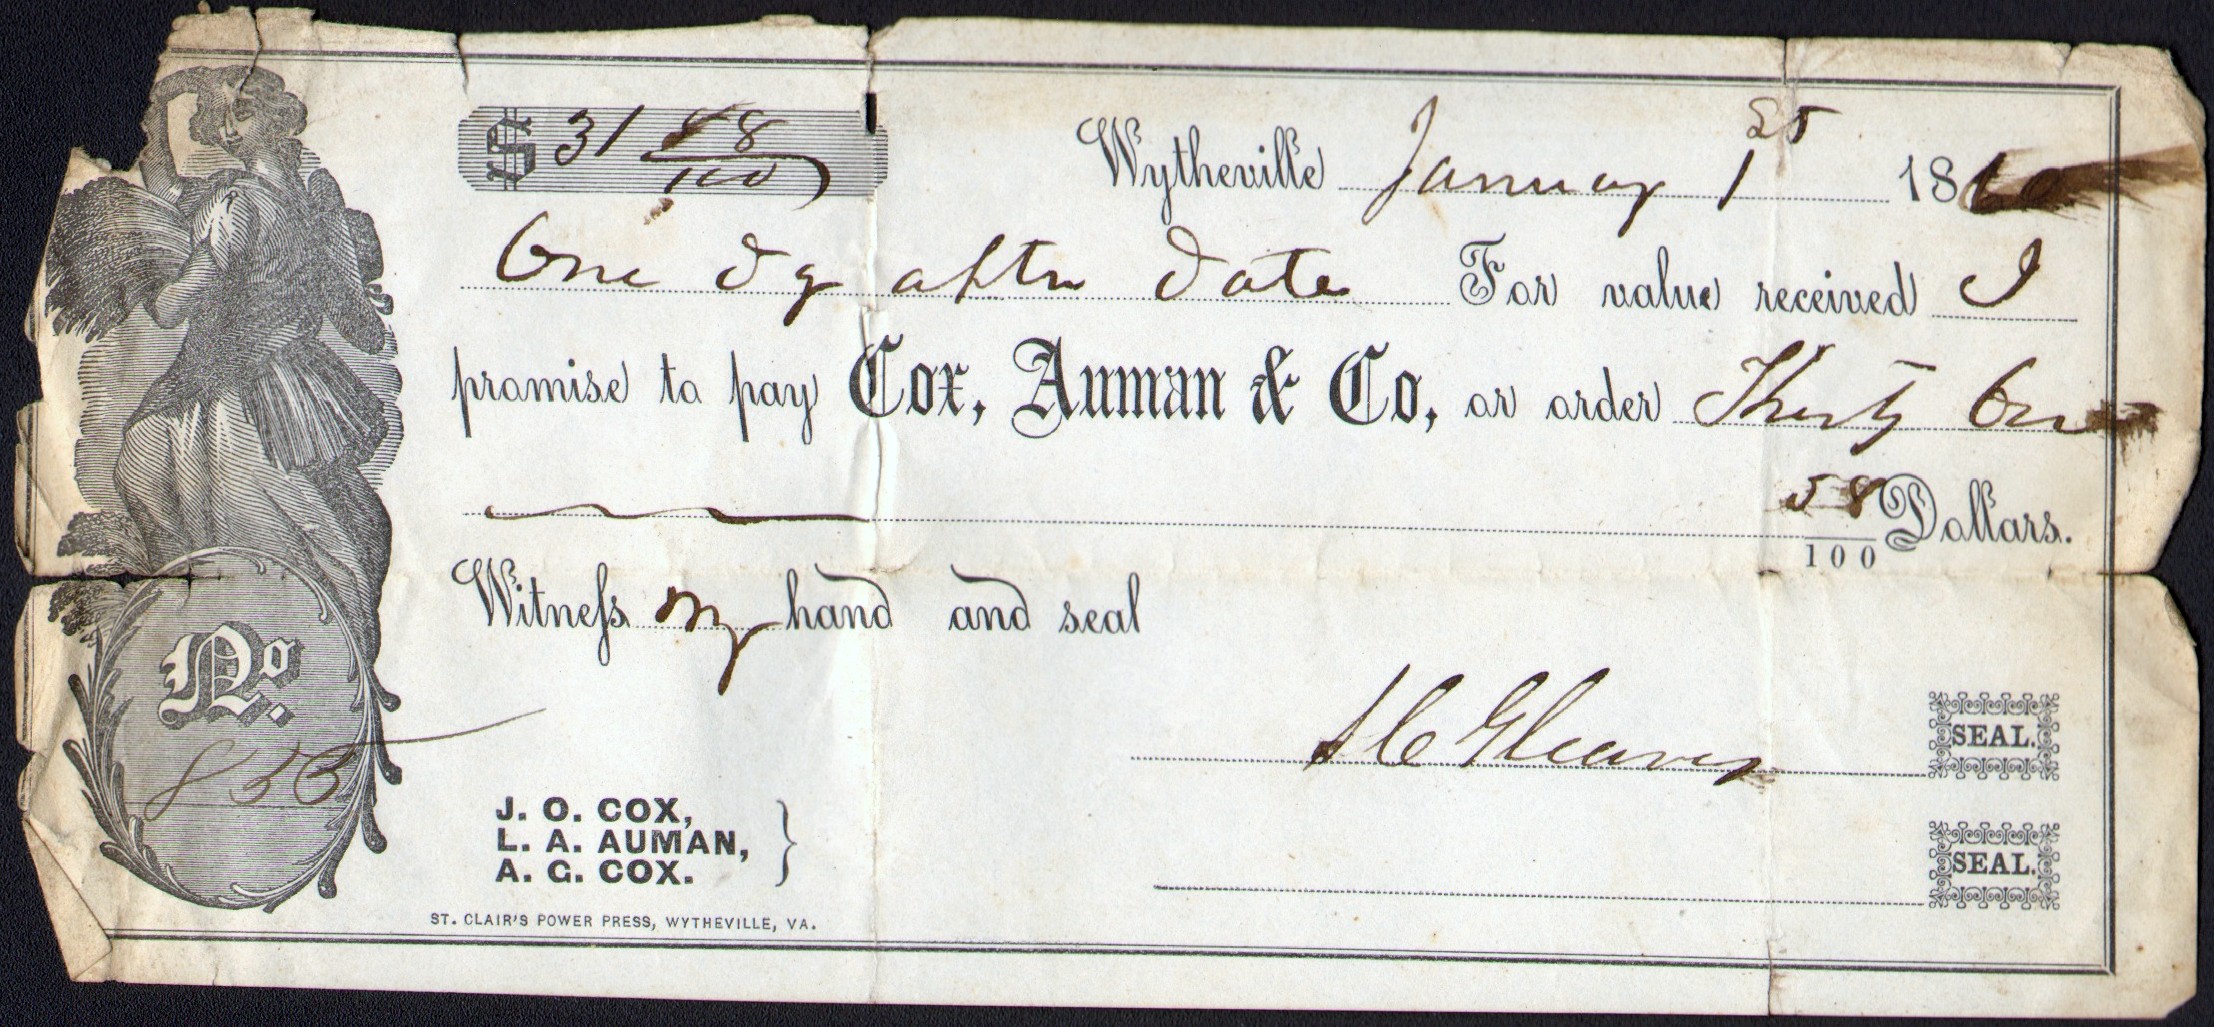 $ 31 58/100 Wytheville January 1st 18
One dy after date For value received I
promise to pay Cox, Auman & Co, or order Thirty One
58/100 Dollars.
Witness my hand and seal
No.
833
S C Gleaves SEAL.
J. O. COX,
L. A. AUMAN,
A. G. COX.
SEAL.
ST. CLAIR'S POWER PRESS, WYTHEVILLE, VA.